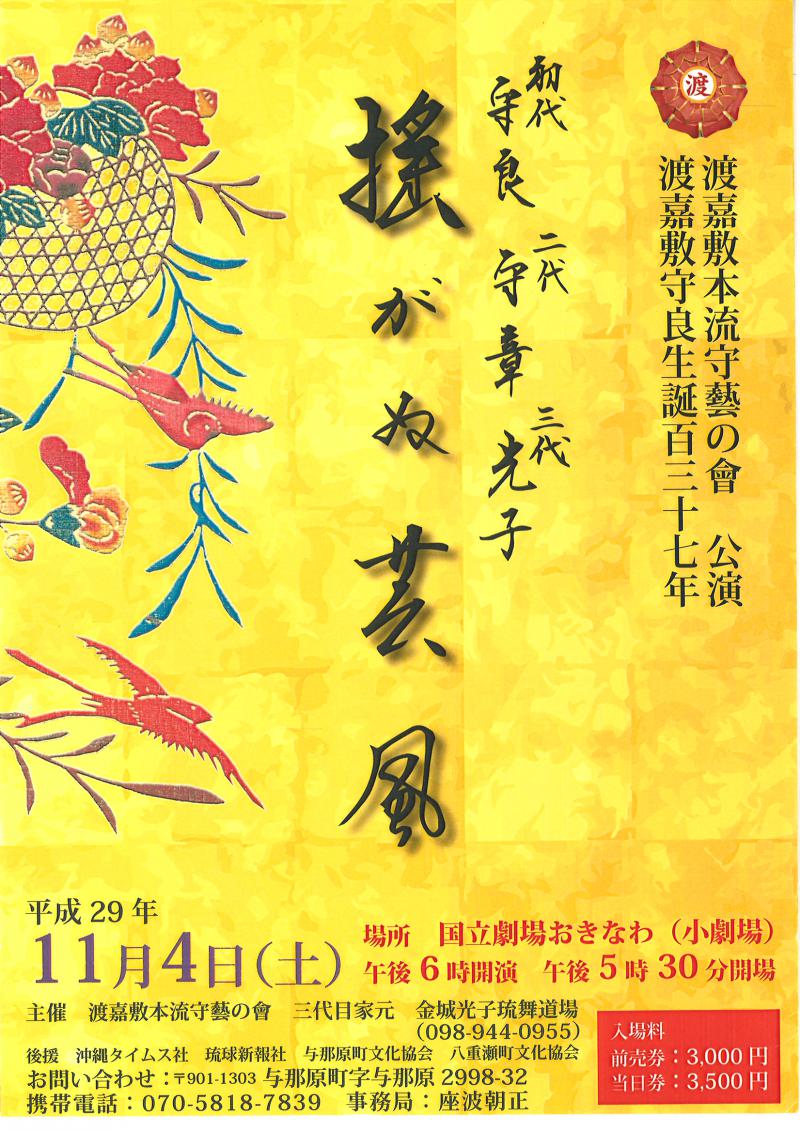 渡
渡嘉敷本流守藝の會　公演
渡嘉敷守良生誕百三十七年
初代 守良 二代 守章 三代 光子
揺がぬ芸風
平成29年
11月4日（土）
場所　国立劇場おきなわ（小劇場）
午後6時開演　午後5時30分開場
主催　渡嘉敷本流守藝の會　三代目家元　金城光子琉舞道場
（098-944-0955）
後援　沖縄タイムス社　琉球新報社　与那原町文化協会　八重瀬町文化協会
お問い合わせ：〒901-1303 与那原町字与那原 2998-32
携帯電話：070-5818-7839　事務局：座波朝正
入場料
前売券：3,000円
当日券：3,500円